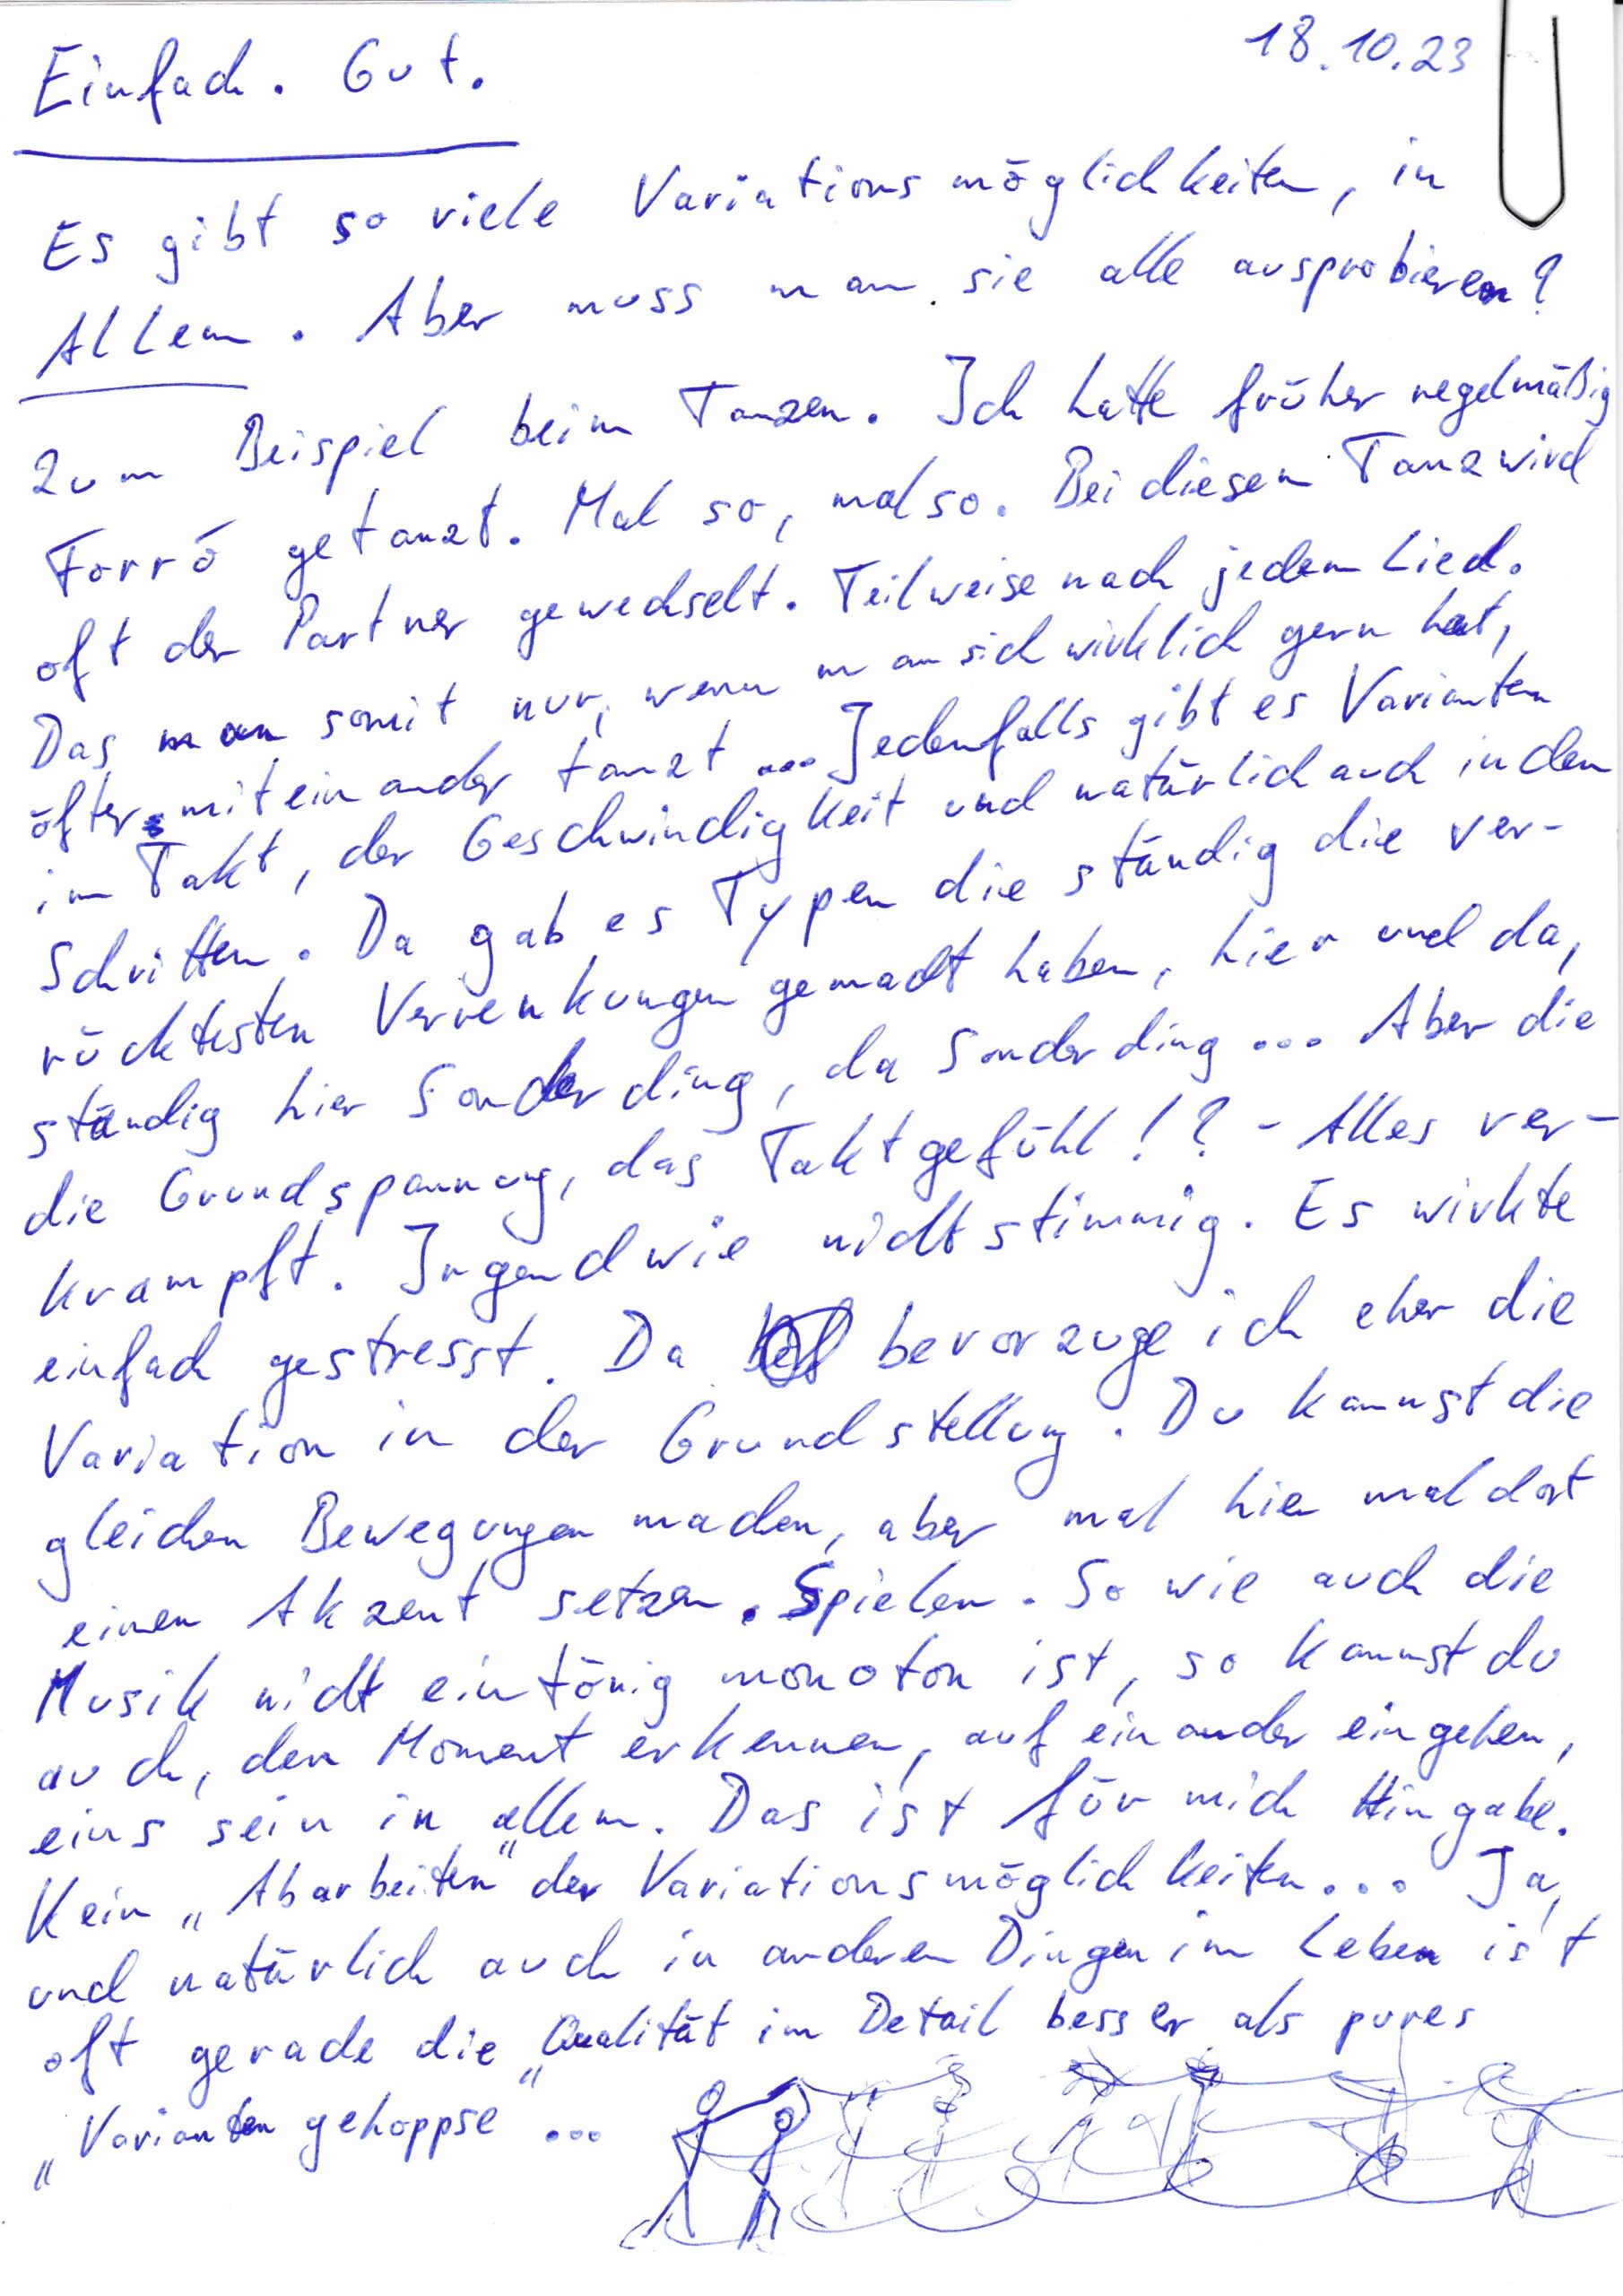 18.10.23
Einfach. Gut.
Es gibt so viele Variationsmöglichkeiten, in
Allem. Aber muss man sie alle ausprobieren?
Zum Beispiel beim Tanzen. Ich hatte früher regelmäßig
Forró getanzt. Mal so, mal so. Bei diesem Tanz wird
oft der Partner gewechselt. Teilweise nach jedem Lied.
Das man somit nur, wenn man sich wirklich gern hat,
öfter mit einander tanzt ... Jedenfalls gibt es Varianten
im Takt, der Geschwindigkeit und natürlich auch in den
Schritten. Da gab es Typen die ständig die ver-
rücktesten Verrenkungen gemacht haben, hier und da,
ständig hier Sonderding, da Sonderding ... Aber die
die Grundspannung, das Taktgefühl!? - Alles ver-
krampft. Irgendwie nicht stimmig. Es wirkte
einfach gestresst. Da bevorzuge ich eher die
Variation in der Grundstellung. Du kannst die
gleichen Bewegungen machen, aber mal hier mal dort
einen Akzent setzen. Spielen. So wie auch die
Musik nicht eintönig monoton ist, so kannst du
auch, den Moment erkennen, auf einander eingehen,
eins sein in allem. Das ist für mich Hingabe.
Kein „Abarbeiten" der Variationsmöglichkeiten... Ja,
und natürlich auch in anderen Dingen im Leben ist
oft gerade die „Qualität im Detail besser als pures
„Varianten gehoppse ...